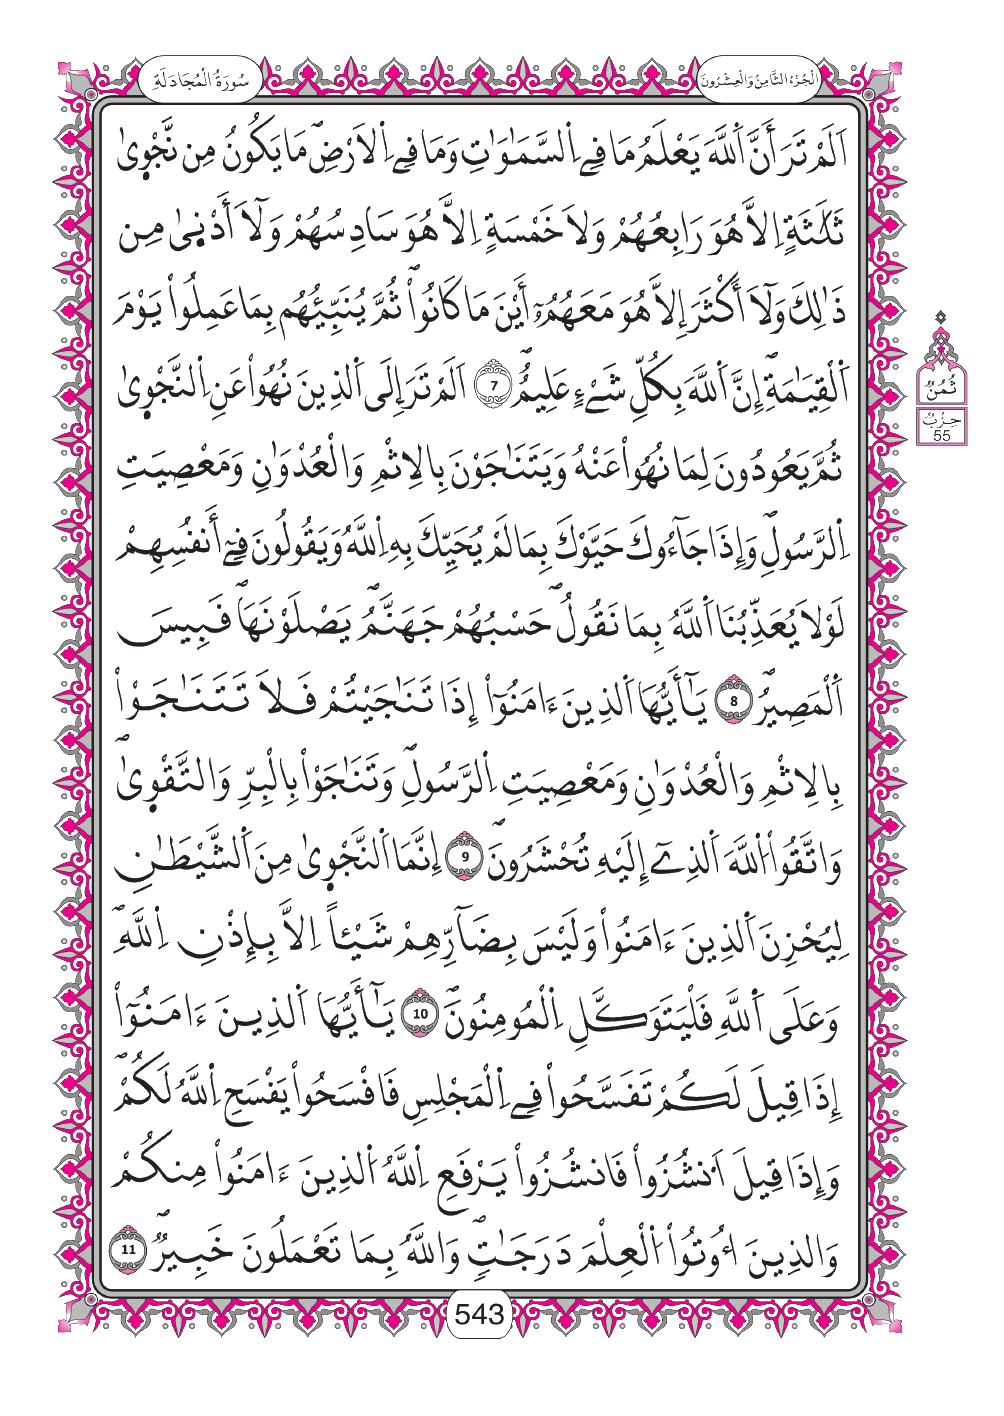 سُورَةُ الْمُجَادَلَةِ
الْجُزْءُ الثَّامِنُ وَالْعِشْرُونَ
اَلَمْ تَرَ أَنَّ اَ۬للَّهَ يَعْلَمُ مَا فِے اِ۬لسَّمَٰوَٰتِ وَمَا فِے اِ۬لَارْضِۖ مَا يَكُونُ مِن نَّجْو۪ىٰ
ثَلَٰثَةٍ اِلَّا هُوَ رَابِعُهُمْ وَلَا خَمْسَةٍ اِلَّا هُوَ سَادِسُهُمْ وَلَآ أَدْن۪ىٰ مِن
ذَٰلِكَ وَلَآ أَكْثَرَ إِلَّا هُوَ مَعَهُمُۥٓ أَيْنَ مَا كَانُواْۖ ثُمَّ يُنَبِّئُهُم بِمَا عَمِلُواْ يَوْمَ
اَ۬لْقِيَٰمَةِۖ إِنَّ اَ۬للَّهَ بِكُلِّ شَےْءٍ عَلِيمٌۖ 7 اَلَمْ تَرَ إِلَى اَ۬لذِينَ نُهُواْ عَنِ اِ۬لنَّجْو۪ىٰ
ثُمَّ يَعُودُونَ لِمَا نُهُواْ عَنْهُ وَيَتَنَٰجَوْنَ بِالِاثْمِ وَالْعُدْوَٰنِ وَمَعْصِيَتِ
اِ۬لرَّسُولِۖ وَإِذَا جَآءُوكَ حَيَّوْكَ بِمَا لَمْ يُحَيِّكَ بِهِ اِ۬للَّهُ وَيَقُولُونَ فِےٓ أَنفُسِهِمْ
لَوْلَا يُعَذِّبُنَا اَ۬للَّهُ بِمَا نَقُولُۖ حَسْبُهُمْ جَهَنَّمُۖ يَصْلَوْنَهَاۖ فَبِيسَ
اَ۬لْمَصِيرُۖ 8 يَٰٓأَيُّهَا اَ۬لذِينَ ءَامَنُوٓاْ إِذَا تَنَٰجَيْتُمْ فَلَا تَتَنَٰجَوْاْ
بِالِاثْمِ وَالْعُدْوَٰنِ وَمَعْصِيَتِ اِ۬لرَّسُولِۖ وَتَنَٰجَوْاْ بِالْبِرِّ وَالتَّقْو۪ىٰۖ
وَاتَّقُواْ اُ۬للَّهَ اَ۬لذِےٓ إِلَيْهِ تُحْشَرُونَۖ 9 إِنَّمَا اَ۬لنَّجْو۪ىٰ مِنَ اَ۬لشَّيْطَٰنِ
لِيُحْزِنَ اَ۬لذِينَ ءَامَنُواْ وَلَيْسَ بِضَآرِّهِمْ شَيْـًٔا اِلَّا بِإِذْنِ اِ۬للَّهِۖ
وَعَلَى اَ۬للَّهِ فَلْيَتَوَكَّلِ اِ۬لْمُومِنُونَۖ 10 يَٰٓأَيُّهَا اَ۬لذِينَ ءَامَنُوٓاْ
إِذَا قِيلَ لَكُمْ تَفَسَّحُواْ فِے اِ۬لْمَجْلِسِ فَافْسَحُواْ يَفْسَحِ اِ۬للَّهُ لَكُمْۖ
وَإِذَا قِيلَ اَ۟نشُزُواْ فَانشُزُواْ يَرْفَعِ اِ۬للَّهُ اُ۬لذِينَ ءَامَنُواْ مِنكُمْ
وَالذِينَ أُوتُواْ اُ۬لْعِلْمَ دَرَجَٰتٍۖ وَاللَّهُ بِمَا تَعْمَلُونَ خَبِيرٌۖ 11
ثُمُنٌ
حِزْبٌ
55
543